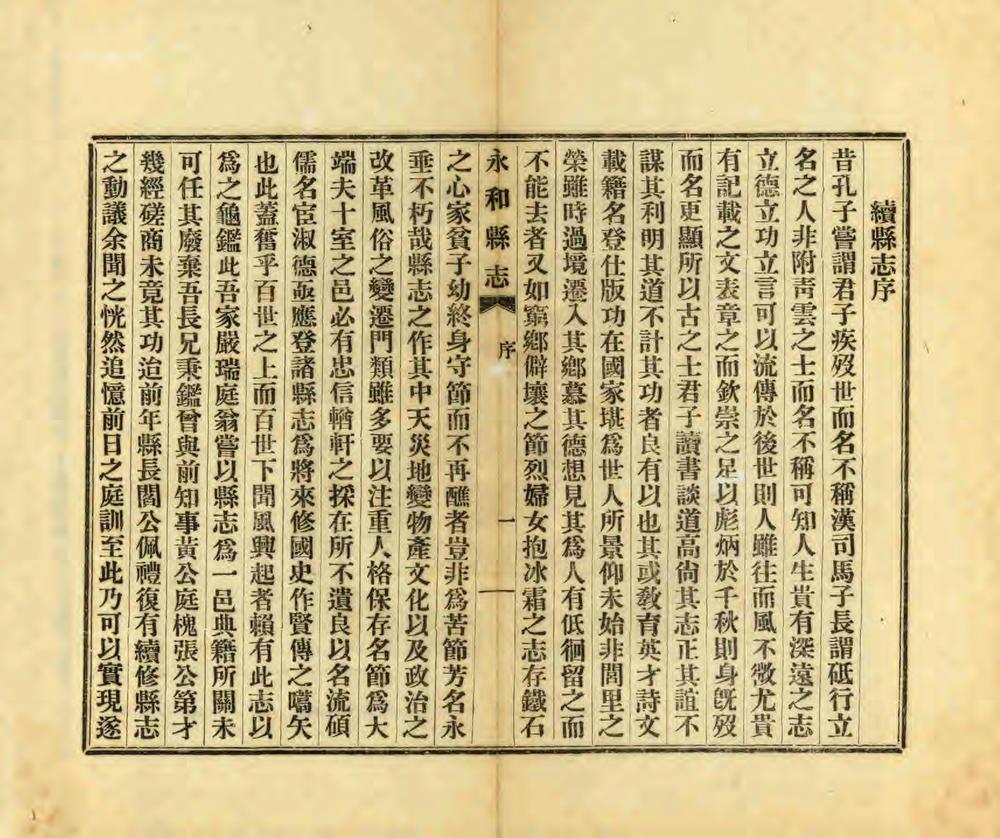 續縣志序
昔孔子嘗謂君子疾歿世而名不稱漢司馬子長謂砥行立
名之人非附青雲之士而名不稱可知人生貴有深遠之志
立德立功立言可以流傳於後世則人雖往而風不微尤貴
有記載之文表章之而欽崇之足以彪炳於千秋則身旣歿
而名更顯所以古之士君子讀書談道高尙其志正其誼不
謀其利明其道不計其功者良有以也其或敎育英才詩文
載籍名登仕版功在國家堪爲世人所景仰未始非閭里之
榮雖時過境遷入其鄕慕其德想見其爲人有低徊留之而
不能去者又如窮鄕僻壤之節烈婦女抱冰霜之志存鐵石
永和縣志 序 一
之心家貧子幼終身守節而不再醮者豈非爲苦節芳名永
垂不朽哉縣志之作其中天災地變物產文化以及政治之
改革風俗之變遷門類雖多要以注重人格保存名節爲大
端夫十室之邑必有忠信輶軒之採在所不遺良以名流碩
儒名宦淑德亟應登諸縣志爲將來修國史作賢傳之嚆矢
也此蓋奮乎百世之上而百世下聞風興起者賴有此志以
爲之龜鑑此吾家嚴瑞庭翁嘗以縣志爲一邑典籍所關未
可任其廢棄吾長兄秉鑑曾與前知事黃公庭槐張公第才
幾經磋商未竟其功迨前年縣長閻公佩禮復有續修縣志
之動議余聞之恍然追憶前日之庭訓至此乃可以實現遂